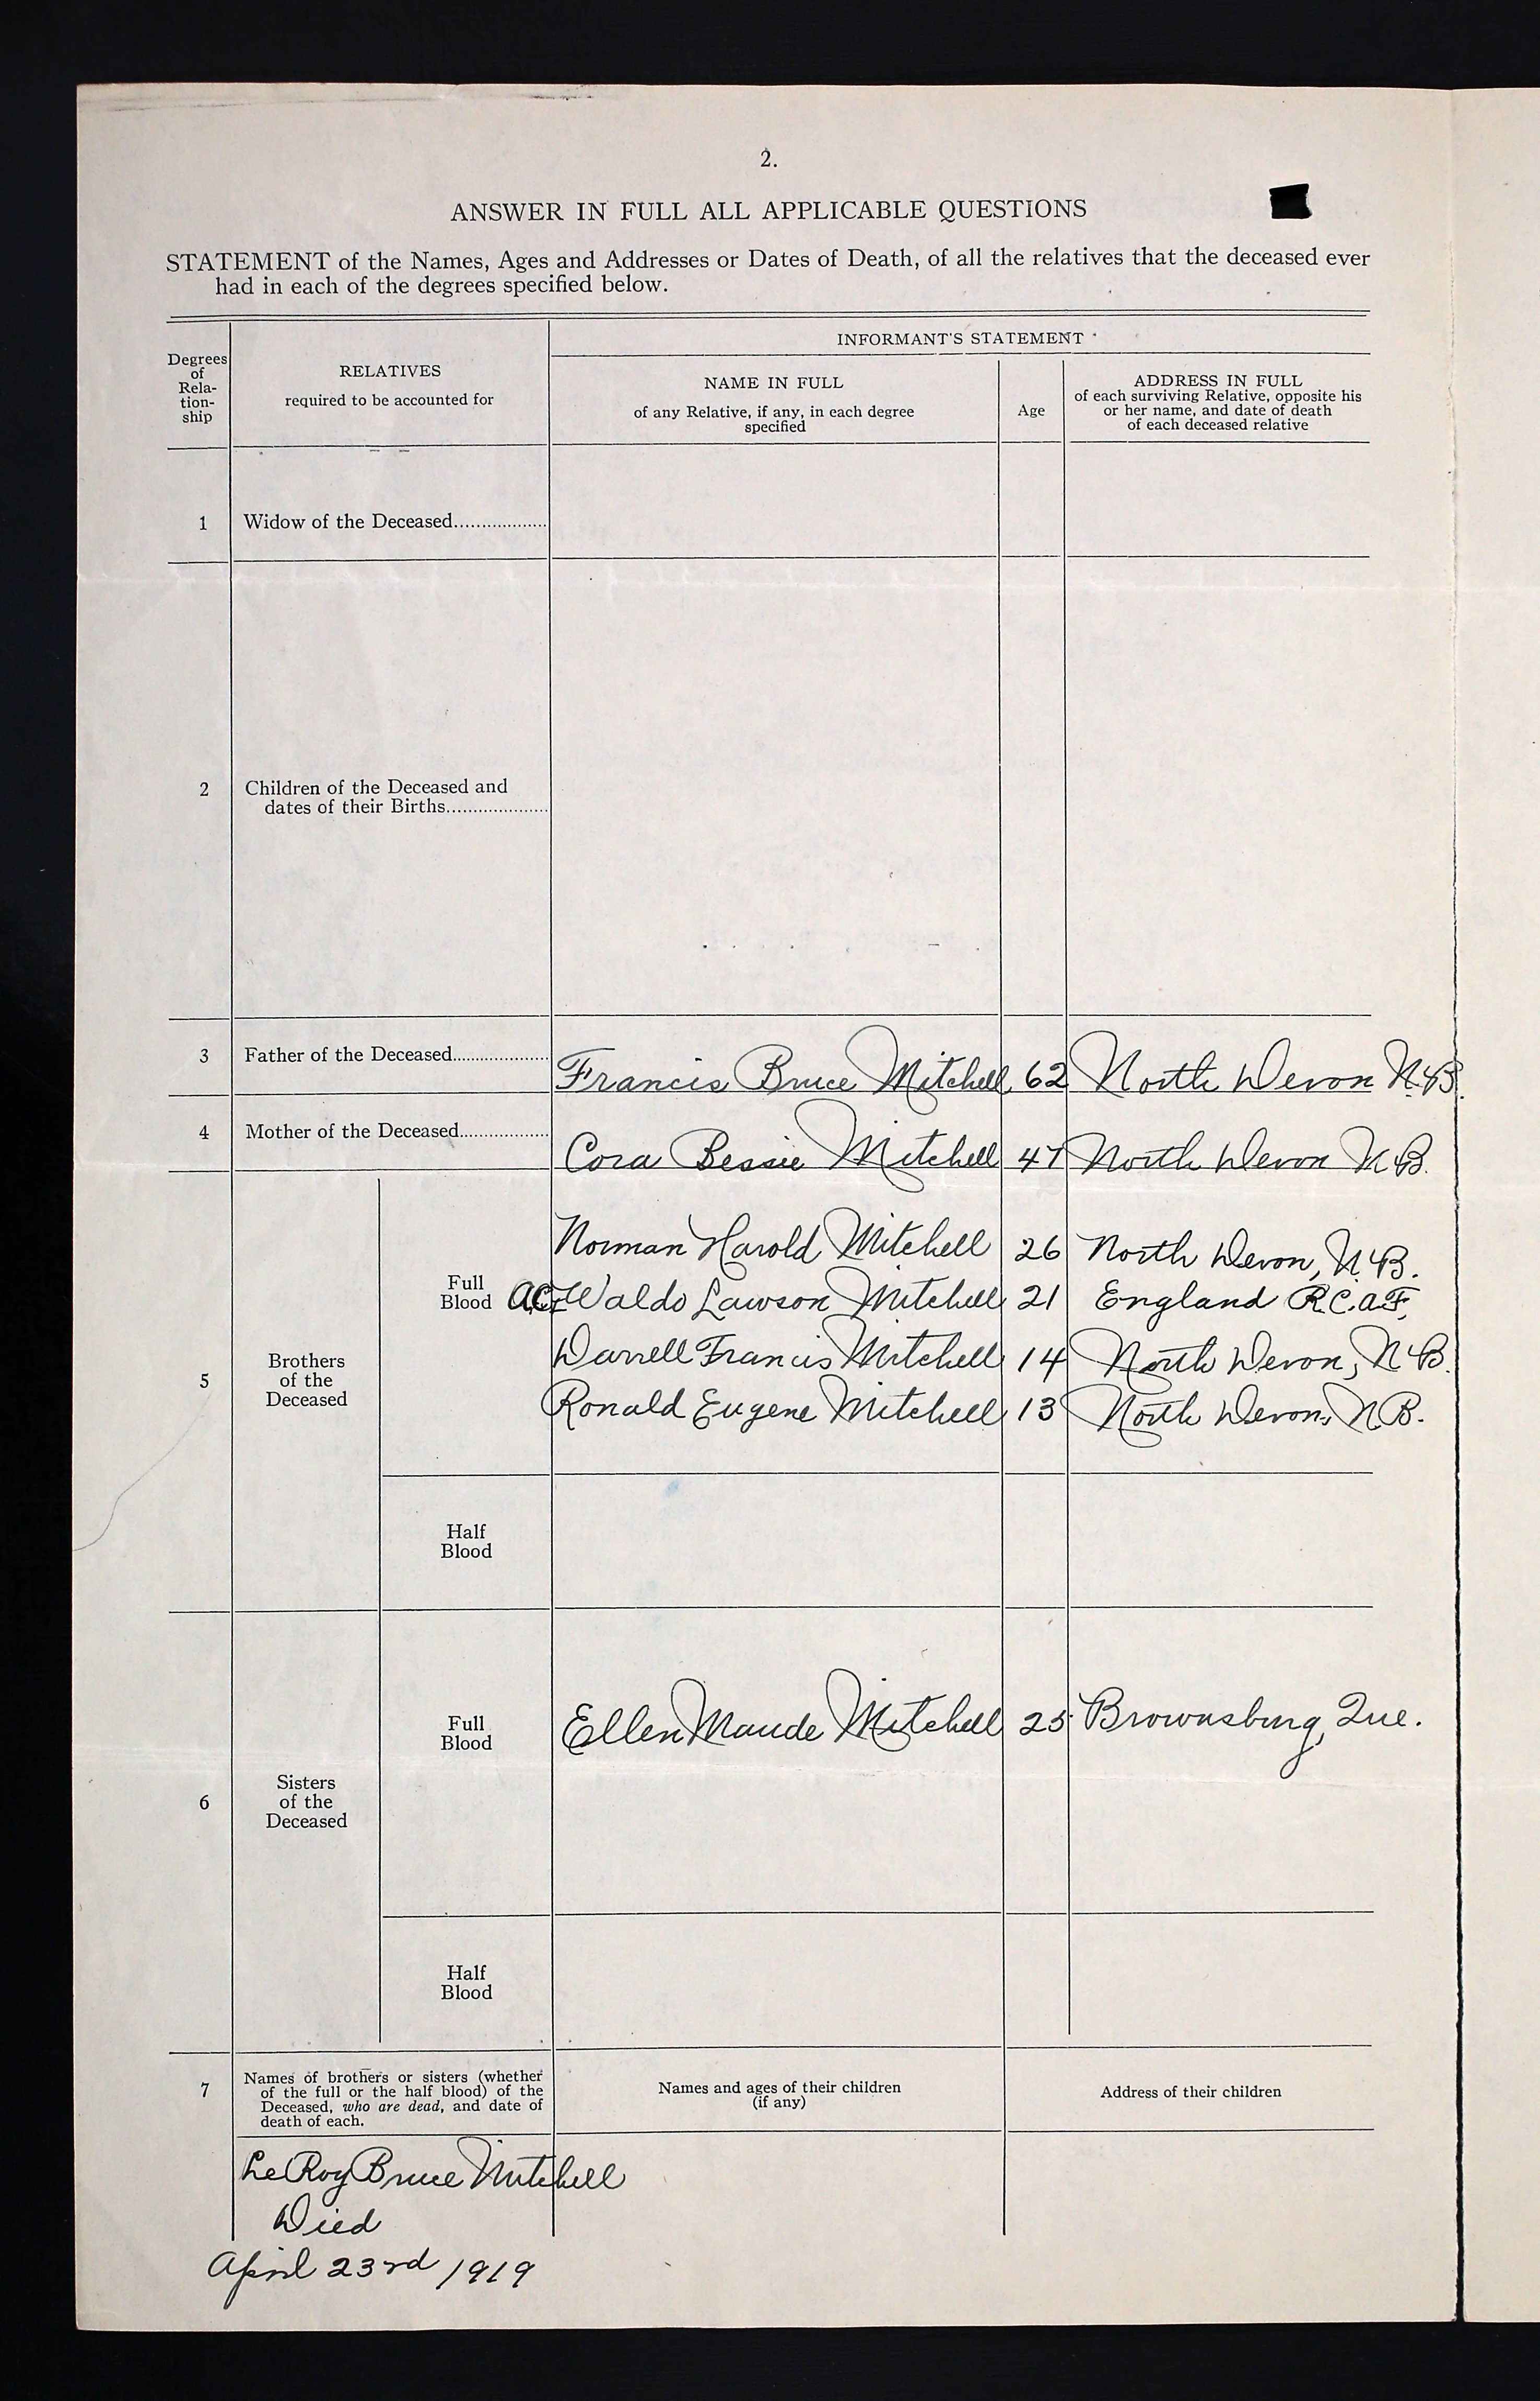 2.
ANSWER IN FULL ALL APPLICABLE QUESTIONS
STATEMENT of the Names, Ages and Addresses or Dates of Death, of all the relatives that the deceased ever
had in each of the degrees specified below.
Degrees
of
Rela-
tion-
ship
RELATIVES
required to be accounted for
INFORMANT'S STATEMENT
NAME IN FULL
of any Relative, if any, in each degree
specified
Age
ADDRESS IN FULL
of each surviving Relative, opposite his
or her name, and date of death
of each deceased relative
1 Widow of the Deceased..................
2 Children of the Deceased and
dates of their Births....................
3 Father of the Deceased.................... Francis Bruce Mitchell 62 North Devon N.B.
4 Mother of the Deceased.................. Cora Bessie Mitchell 47 North Devon N.B.
5 Brothers
of the
Deceased
Full
Blood
Norman Harold Mitchell 26 North Devon, N.B.
Waldo Lawson Mitchell 21 England R.C.A.F.
Darrell Francis Mitchell 14 North Devon, N.B.
Ronald Eugene Mitchell 13 North Devon, N.B.
Half
Blood
6 Sisters
of the
Deceased
Full
Blood
Ellen Maude Mitchell 25 Brownsburg, Que.
Half
Blood
7 Names of brothers or sisters (whether
of the full or the half blood) of the
Deceased, who are dead, and date of
death of each.
Names and ages of their children
(if any)
Address of their children
LeRoy Bruce Mitchell
Died
April 23rd 1919